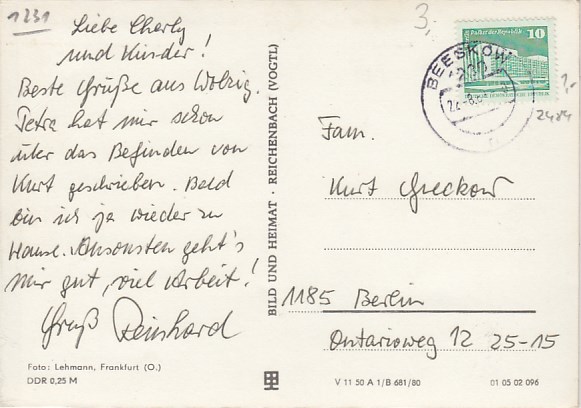 1231
Liebe Charly
und Kinder!
Beste Grüße aus Wolzig.
Petra hat mir schon
über das Befinden von
Kurt geschrieben. Bald
bin ich ja wieder zu
Hause. Ansonsten geht's
mir gut, viel Arbeit!
Gruß Reinhard
Foto: Lehmann, Frankfurt (O.)
DDR 0,25 M
BILD UND HEIMAT · REICHENBACH (VOGTL)
3,-
Palast der Republik
10
BEESKOW
1,-
2484
Fam.
Kurt Greckow
1185 Berlin
Ontarioweg 12 25-15
V 11 50 A 1/B 681/80
01 05 02 096